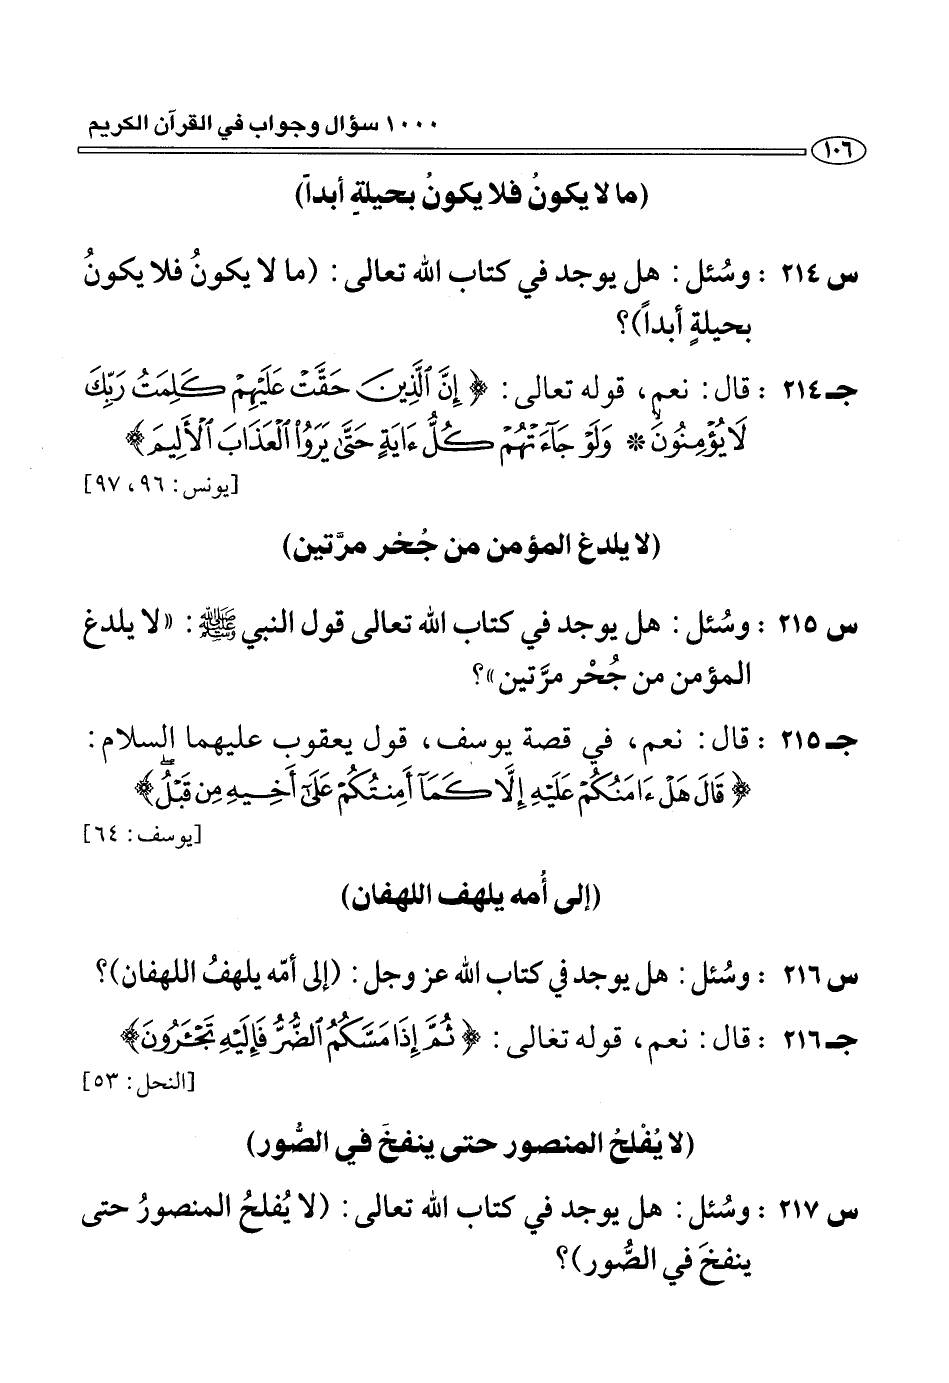 ١٠٠٠ سؤال وجواب في القرآن الكريم
١٠٦
(ما لا يكونُ فلا يكونُ بحيلةٍ أبداً)
س ٢١٤ : وسُئل : هل يوجد في كتاب الله تعالى : (ما لا يكونُ فلا يكونُ
بحيلةٍ أبداً)؟
جـ ٢١٤ : قال : نعم، قوله تعالى : ﴿ إِنَّ ٱلَّذِينَ حَقَّتْ عَلَيْهِمْ كَلِمَتُ رَبِّكَ
لَا يُؤْمِنُونَ * وَلَوْ جَآءَتْهُمْ كُلُّ ءَايَةٍ حَتَّىٰ يَرَوُا۟ ٱلْعَذَابَ ٱلْأَلِيمَ ﴾
[يونس : ٩٦، ٩٧]
(لا يلدغ المؤمن من جُخر مرَّتين)
س ٢١٥ : وسُئل : هل يوجد في كتاب الله تعالى قول النبي ﷺ : «لا يلدغ
المؤمن من جُحْر مرَّتين»؟
جـ ٢١٥ : قال : نعم، في قصة يوسف، قول يعقوب عليهما السلام :
﴿ قَالَ هَلْ ءَامَنُكُمْ عَلَيْهِ إِلَّا كَمَآ أَمِنتُكُمْ عَلَىٰٓ أَخِيهِ مِن قَبْلُ ۖ ﴾
[يوسف : ٦٤]
(إلى أُمه يلهف اللهفان)
س ٢١٦ : وسُئل : هل يوجد في كتاب الله عز وجل : (إلى أمّه يلهفُ اللهفان)؟
جـ ٢١٦ : قال : نعم، قوله تعالى : ﴿ ثُمَّ إِذَا مَسَّكُمُ ٱلضُّرُّ فَإِلَيْهِ تَجْـَٔرُونَ ﴾
[النحل : ٥٣]
(لا يُفْلحُ المنصور حتى ينفخَ في الصُّور)
س ٢١٧ : وسُئل : هل يوجد في كتاب الله تعالى : (لا يُفلحُ المنصورُ حتى
ينفخَ في الصُّور)؟